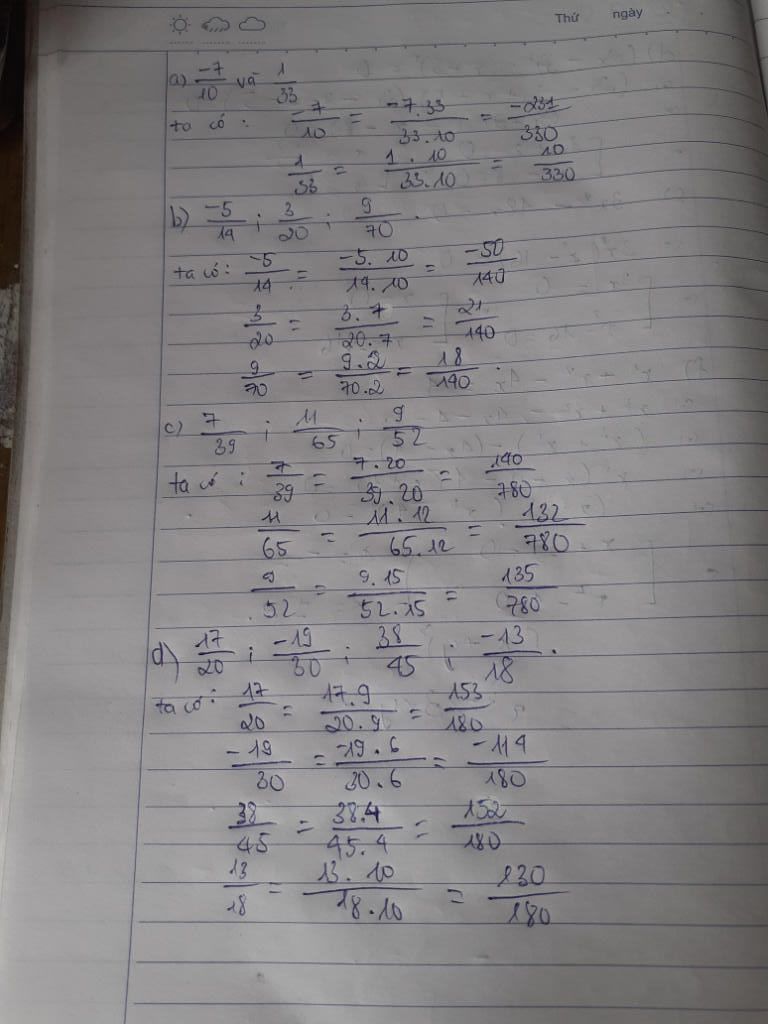 Thứ ngày
a) -7/10 và 1/33
ta có : -7/10 = -7.33/33.10 = -231/330
1/33 = 1.10/33.10 = 10/330
b) -5/14 ; 3/20 ; 9/70 .
ta có : -5/14 = -5.10/14.10 = -50/140
3/20 = 3.7/20.7 = 21/140
9/70 = 9.2/70.2 = 18/140 .
c) 7/39 ; 11/65 ; 9/52
ta có : 7/39 = 7.20/39.20 = 140/780
11/65 = 11.12/65.12 = 132/780
9/52 = 9.15/52.15 = 135/780
d) 17/20 ; -19/30 ; 38/45 ; -13/18 .
ta có : 17/20 = 17.9/20.9 = 153/180
-19/30 = -19.6/30.6 = -114/180
38/45 = 38.4/45.4 = 152/180
13/18 = 13.10/18.10 = 130/180